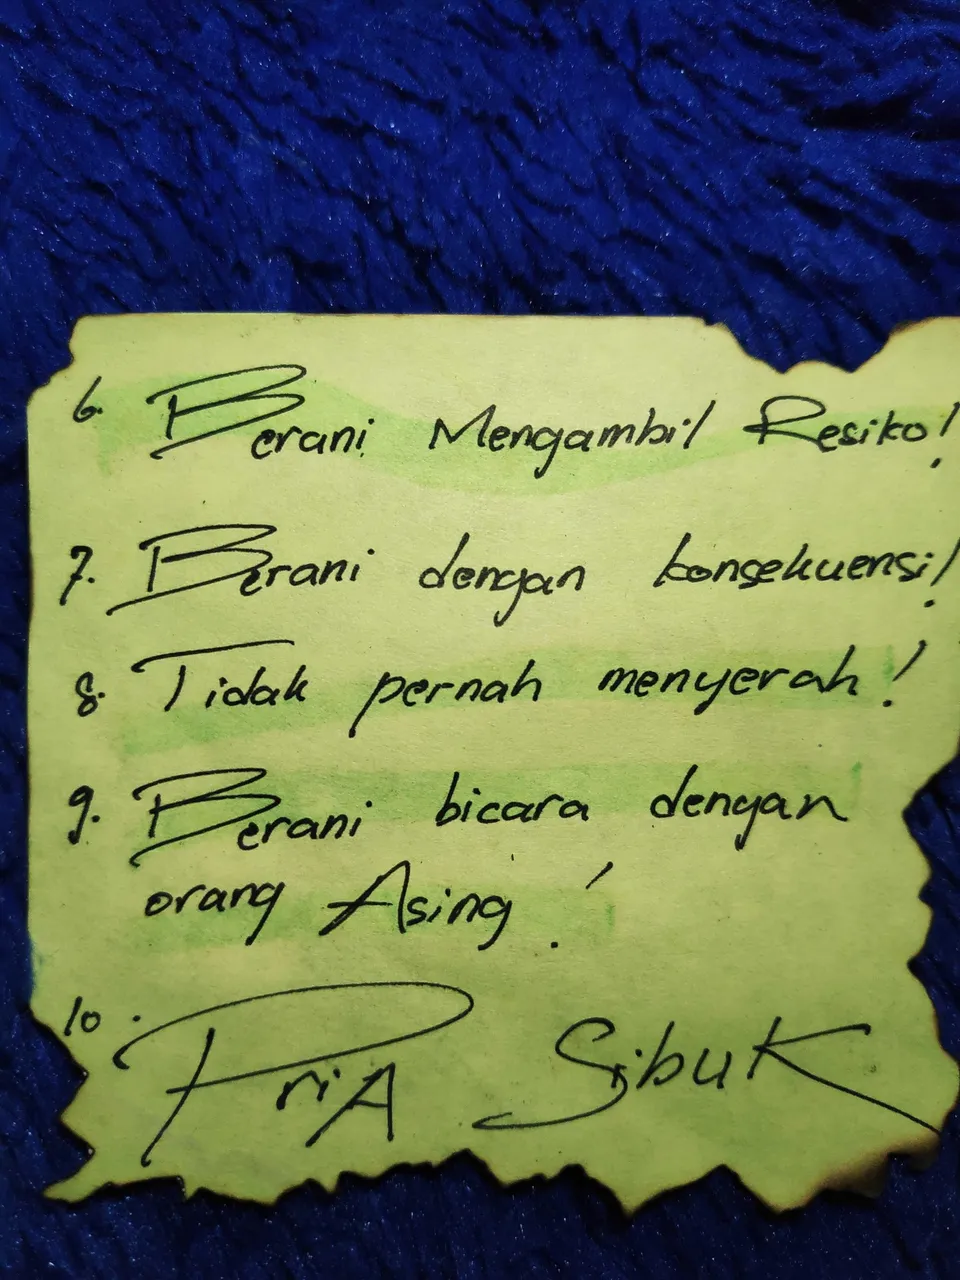 6. Berani Mengambil Resiko!
7. Berani dengan konsekuensi!
8. Tidak pernah menyerah!
9. Berani bicara dengan
orang Asing!
10. PriA SibuK